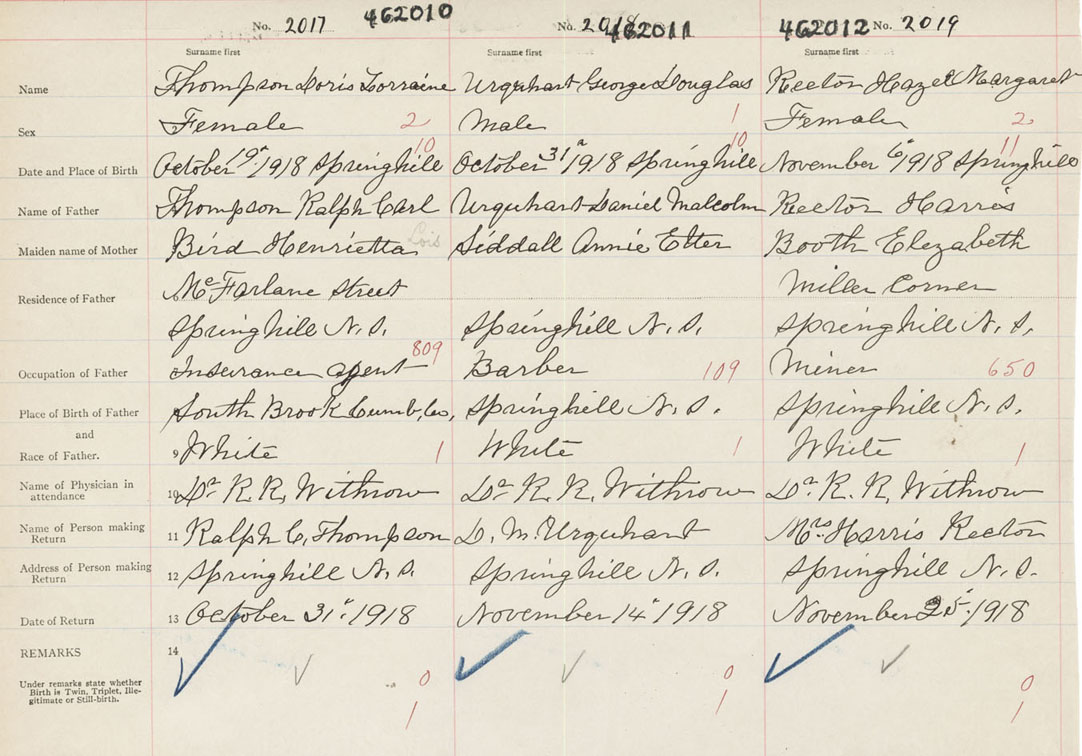 No. 2017 462010 No. 2018 462011 462012 No. 2019
Surname first Surname first Surname first
Name Thompson Doris Lorraine Urquhart George Douglas Rector Hazel Margaret
Sex Female 2 Male 1 Female 2
10 10 11
Date and Place of Birth October 19" 1918 Springhill October 31" 1918 Springhill November 6" 1918 Springhill
Name of Father Thompson Ralph Carl Urquhart Daniel Malcolm Rector Harris
Maiden name of Mother Bird Henrietta Lois Siddall Annie Etter Booth Elezabeth
Residence of Father McFarlane Street Miller Corner
Springhill N. S. Springhill N. S. Springhill N. S.
809
Occupation of Father Insurance agent Barber 109 Miner 650
Place of Birth of Father South Brook Cumb, Co, Springhill N. S. Springhill N. S.
and
Race of Father. 9 White 1 White 1 White 1
Name of Physician in attendance 10 Dr R. R. Withrow Dr R. R. Withrow Dr R. R. Withrow
Name of Person making Return 11 Ralph C. Thompson D. M. Urquhart Mrs. Harris Rector
Address of Person making Return 12 Springhill N. S. Springhill N. S. Springhill N. S.
Date of Return 13 October 31" 1918 November 14" 1918 November 25" 1918
REMARKS 14
Under remarks state whether
Birth is Twin, Triplet, Ille-
gitimate or Still-birth.
0 0 0
1 1 1